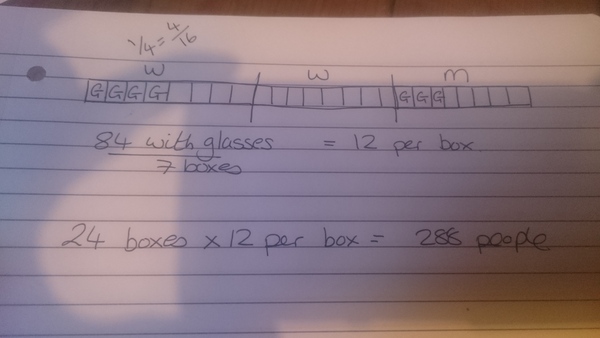 1/4 = 4/16
W W M
G G G G G G G
84 with glasses = 12 per box
7 boxes
24 boxes x 12 per box = 288 people